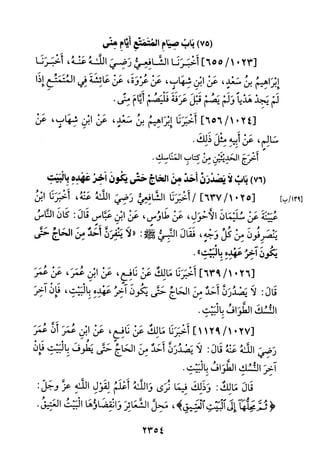 (٧٥) بَابُ صِيَامِ المُتَمَتِّعِ أَيَّامَ مِنًى
[٦٥٥/١٠٢٣] أَخْبَرَنَا الشَّافِعِيُّ رَضِيَ اللَّهُ عَنْهُ، أَخْبَرَنَا
إِبْرَاهِيمُ بنُ سَعْدٍ، عَنْ ابْنِ شِهَابٍ، عَنْ عُرْوَةَ، عَنْ عَائِشَةَ فِي المُتَمَتِّعِ إِذَا
لَمْ يَجِدْ هَدْياً وَلَمْ يَصُمْ قَبْلَ عَرَفَةَ فَلْيَصُمْ أَيَّامَ مِنًى.
[٦٥٦/١٠٢٤] أَخْبَرَنَا إِبْرَاهِيمُ بنُ سَعْدٍ، عَنْ ابْنِ شِهَابٍ، عَنْ
سَالِمٍ، عَنْ أَبِيهِ مِثْلَ ذَلِكَ.
أَخْرَجَ الحَدِيثَيْنِ مِنْ كِتَابِ المَنَاسِكِ.
(٧٦) بَابُ لاَ يَصْدُرَنَّ أَحَدٌ مِنَ الحَاجِّ حَتَّى يَكُونَ آخِرُ عَهْدِهِ بِالْبَيْتِ
[٦٣٧/١٠٢٥] / أَخْبَرَنَا الشَّافِعِيُّ رَضِيَ اللَّهُ عَنْهُ، أَخْبَرَنَا ابْنُ [١٣٩/ب]
عُيَيْنَةَ عَنْ سُلَيْمَانَ الأَحْوَلِ، عَنْ طَاوُسٍ، عَنْ ابْنِ عَبَّاسٍ قَالَ: كَانَ النَّاسُ
يَنْصَرِفُونَ مِنْ كُلِّ وَجْهٍ، فَقَالَ النَّبِيُّ ﷺ: «لاَ يَنْفِرَنَّ أَحَدٌ مِنَ الحَاجِّ حَتَّى
يَكُونَ آخِرُ عَهْدِهِ بِالْبَيْتِ».
[٦٣٩/١٠٢٦] أَخْبَرَنَا مَالِكٌ عَنْ نَافِعٍ، عَنْ ابْنِ عُمَرَ، عَنْ عُمَرَ
قَالَ: لاَ يَصْدُرَنَّ أَحَدٌ مِنَ الحَاجِّ حَتَّى يَكُونَ آخِرُ عَهْدِهِ بِالْبَيْتِ، فَإِنَّ آخِرَ
النُّسُكِ الطَّوَافُ بِالْبَيْتِ.
[١١٢٩/١٠٢٧] أَخْبَرَنَا مَالِكٌ عَنْ نَافِعٍ، عَنْ ابْنِ عُمَرَ أَنَّ عُمَرَ
رَضِيَ اللَّهُ عَنْهُ قَالَ: لاَ يَصْدُرَنَّ أَحَدٌ مِنَ الحَاجِّ حَتَّى يَطُوفَ بِالْبَيْتِ فَإِنَّ
آخِرَ النُّسُكِ الطَّوَافُ بِالْبَيْتِ.
قَالَ مَالِكٌ: وَذَلِكَ فِيمَا نُرَى وَاللَّهُ أَعْلَمُ لِقَوْلِ اللَّهِ عَزَّ وَجَلَّ:
﴿ثُمَّ مَحِلُّهَا إِلَى الْبَيْتِ الْعَتِيقِ﴾، مَحِلُّ الشَّعَائِرِ وَانْقِضَاؤُهَا البَيْتُ العَتِيقُ.
٢٣٥٤